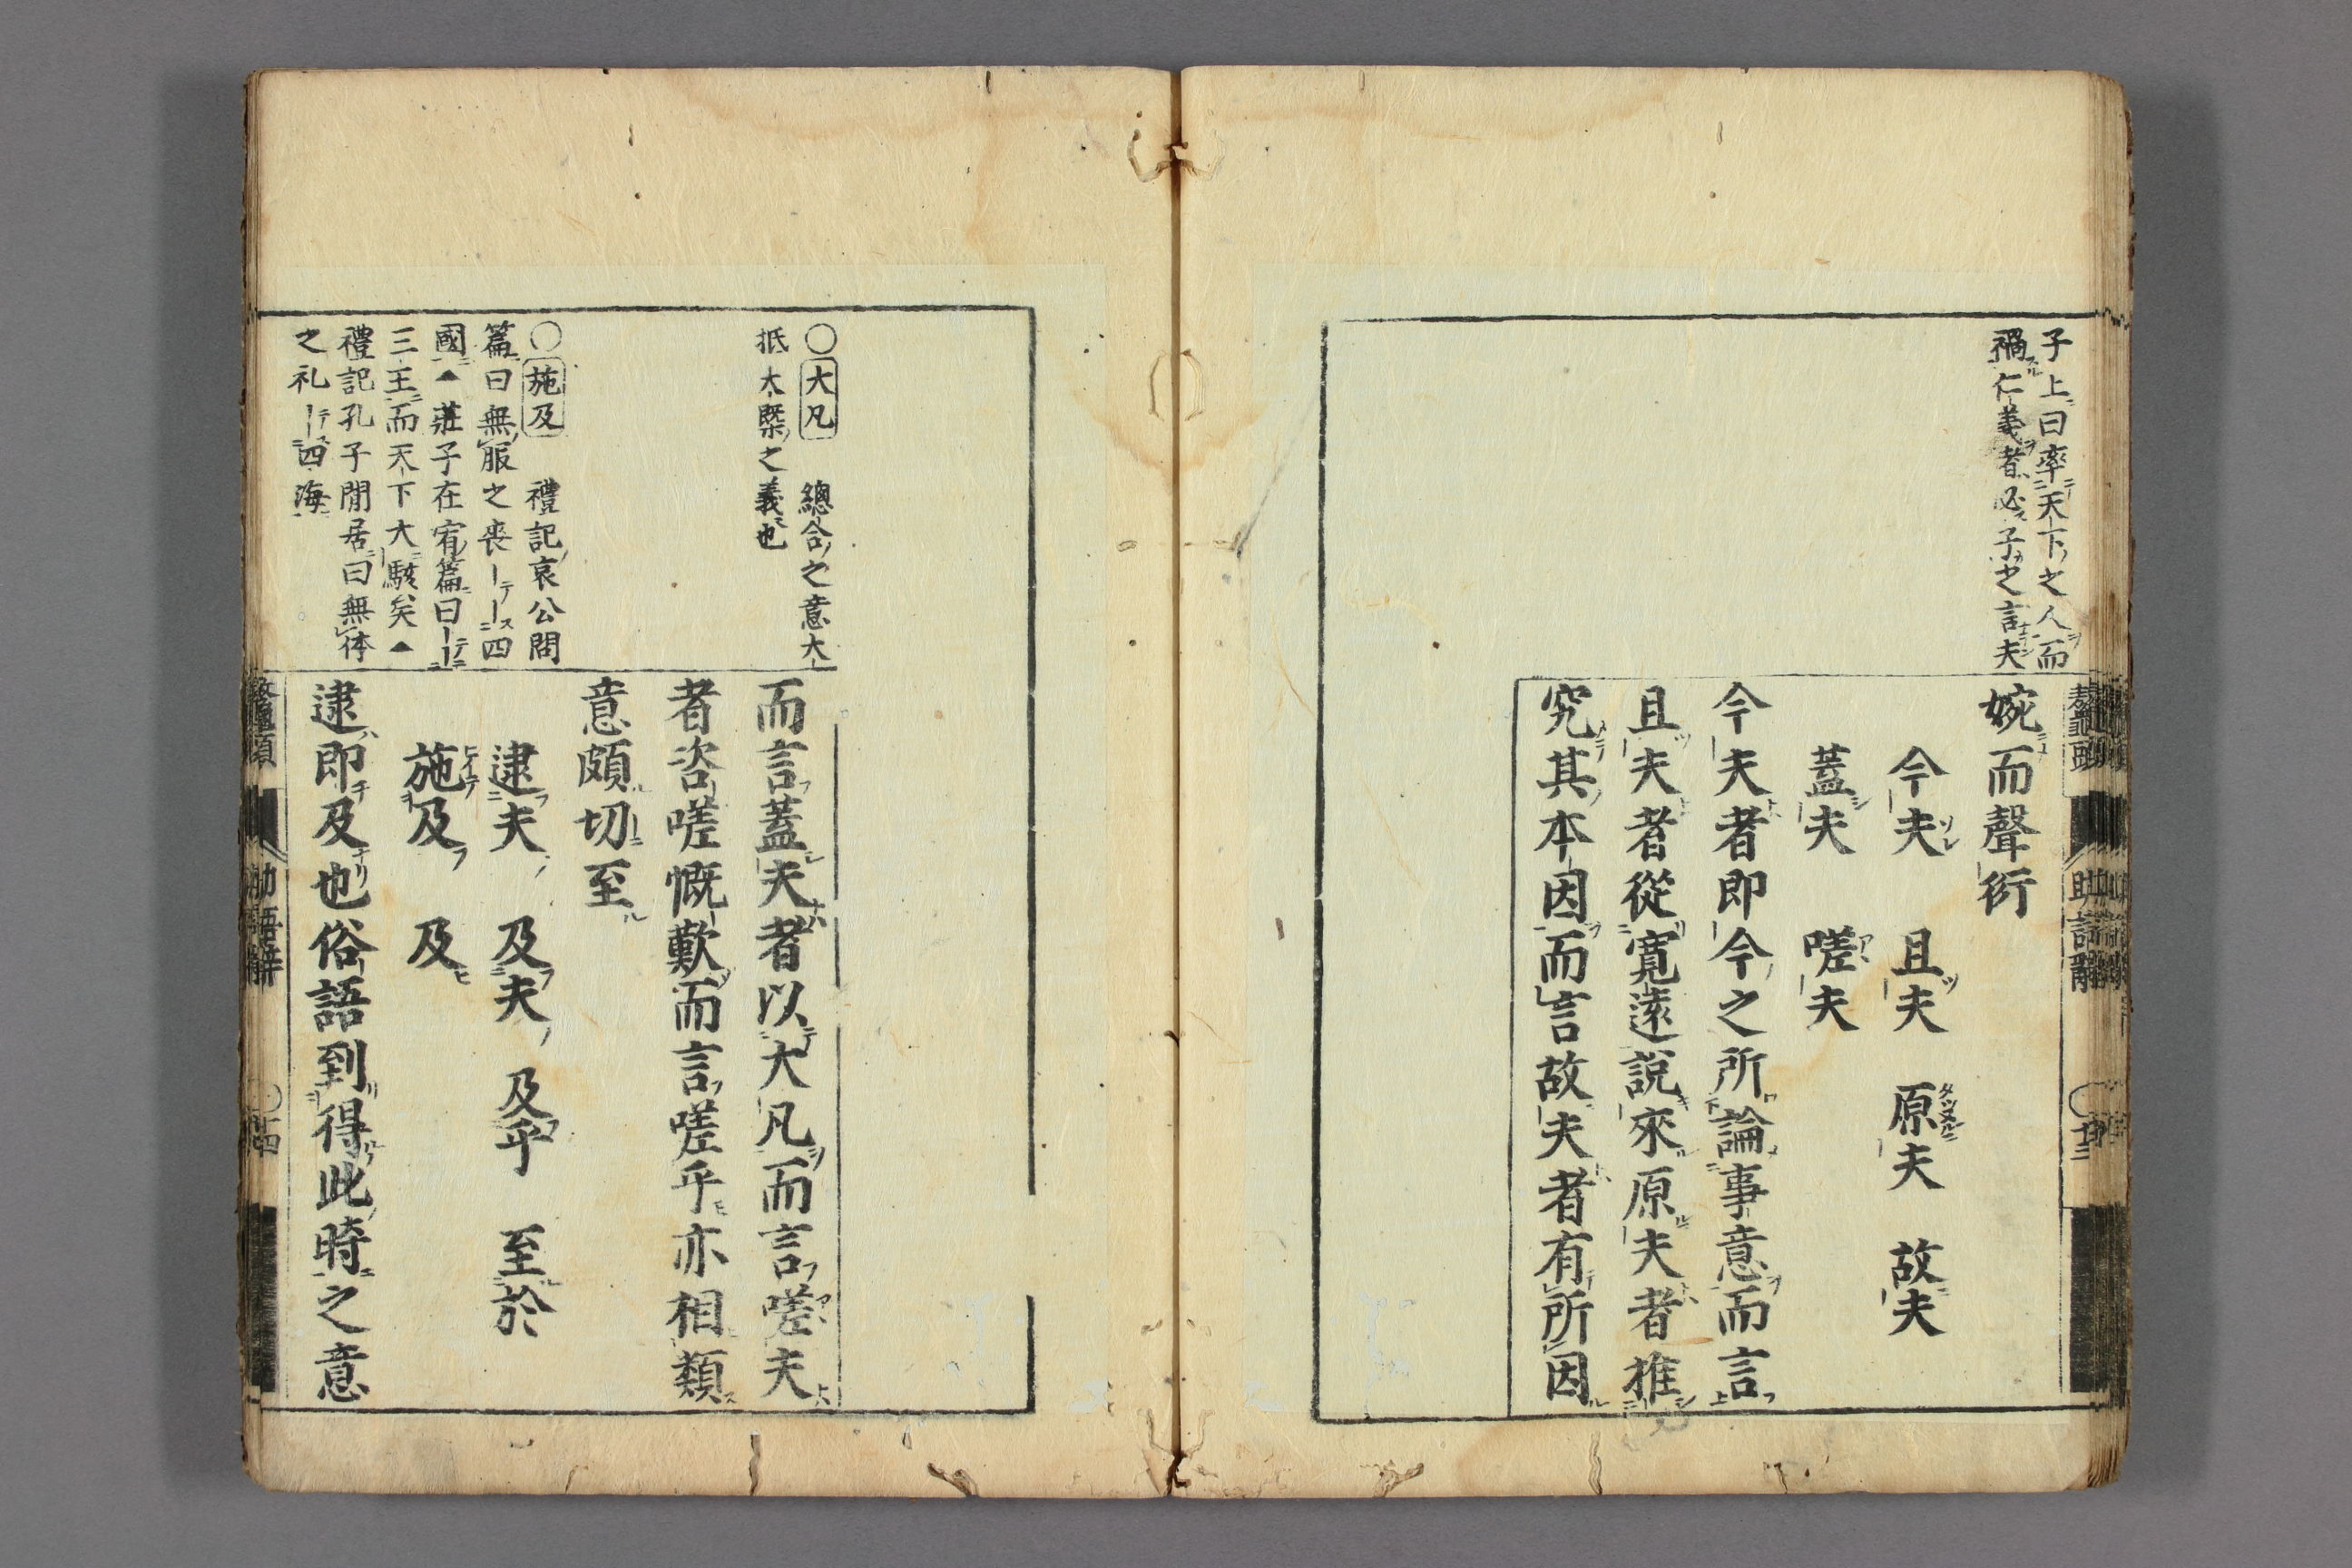 子上曰率天下之人而
禍仁義者必子之言夫
婉而聲衍
今夫 且夫 原夫 故夫
蓋夫 嗟夫
今夫者即今之所論事意而言
且夫者從寛遠說來原夫者推
究其本因而言故夫者有所因
○大凡 總合之意大
抵大槩之義也
○施及 禮記哀公問
篇曰無服之喪――四
國▲莊子在宥篇曰――
三王而天下大駭矣▲
禮記孔子閒居曰無体
之礼――四海
而言蓋夫者以大凡而言嗟夫
者咨嗟慨歎而言嗟乎亦相類
意頗切至
逮夫 及夫 及乎 至於
施及 及
逮即及也俗語到得此時之意